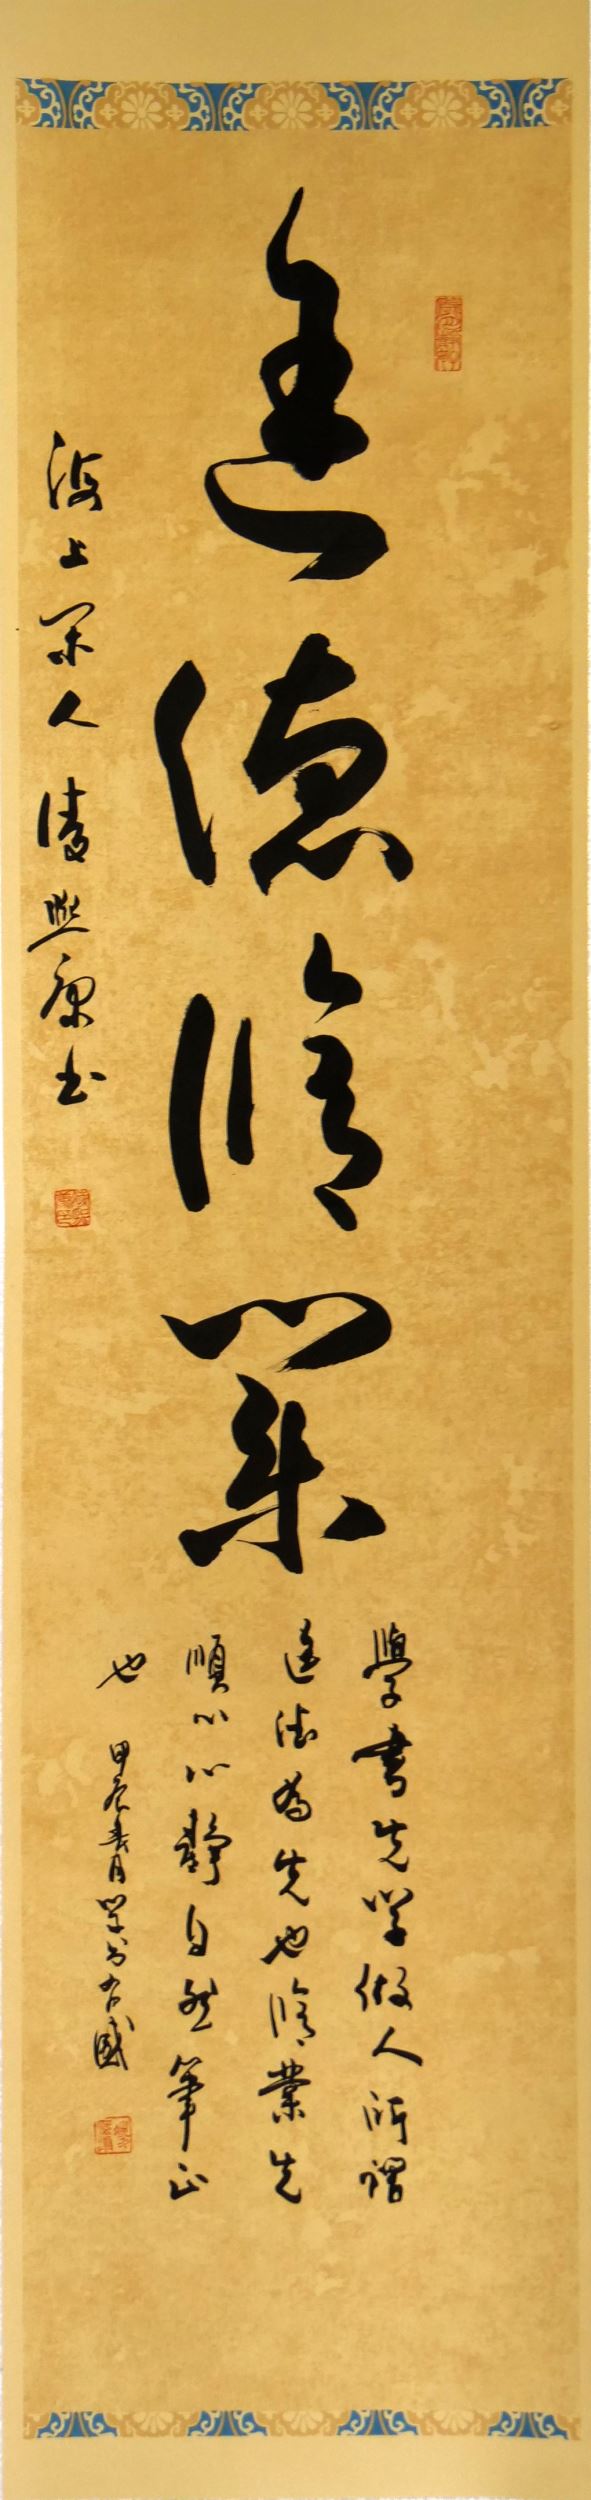 進德修業
海上閑人凌熙康书
學書先学做人所謂
進德為先也修業先
順心心靜自然筆正
也
甲辰春月学书有感